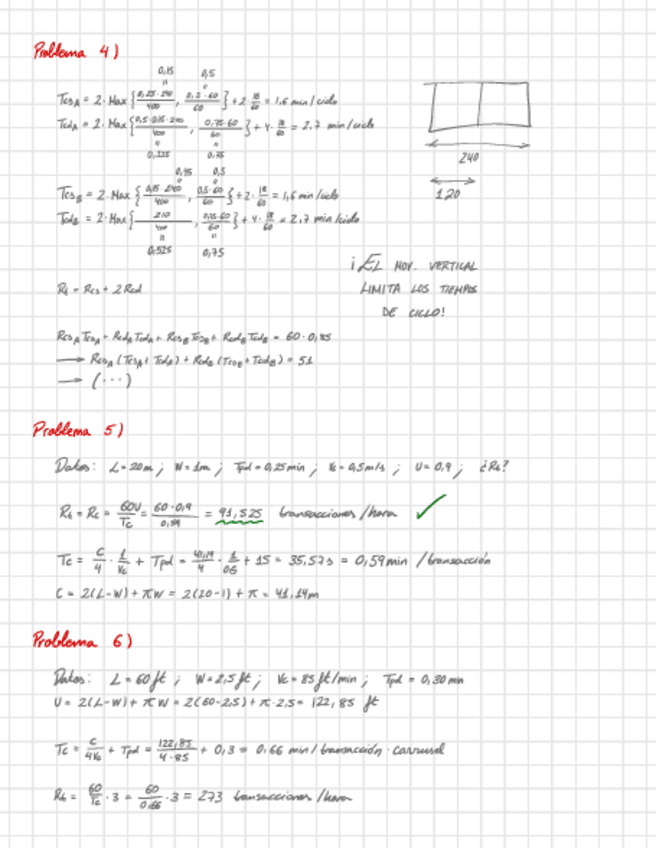 Problema 4)
0,15 0,5
Tcs_A = 2·Max {0,25·240/400 , 0,5·60/60} + 2·18/60 = 1,6 min/ciclo
Tcd_A = 2·Max {0,5·0,75·240/400 , 0,75·60/60} + 4·18/60 = 2,7 min/ciclo
0,225 0,75
240
120
0,45 0,5
Tcs_B = 2·Max {0,75·240/400 , 0,5·60/60} + 2·18/60 = 1,6 min/ciclo
Tcd_B = 2·Max {210/400 , 0,75·60/60} + 4·18/60 = 2,7 min/ciclo
0,525 0,75
¡EL MOV. VERTICAL
LIMITA LOS TIEMPOS
DE CICLO!
Rt = Rcs + 2Rcd
Rcs_A Tcs_A + Rcd_A Tcd_A + Rcs_B Tcs_B + Rcd_B Tcd_B = 60·0,85
→ Rcs_A (Tcs_A + Tcd_A) + Rcd_B (Tcs_B + Tcd_B) = 51
→ (···)
Problema 5)
Datos: L = 20m ; W = 1m ; Tpd = 0,25min ; Vc = 0,5m/s ; U = 0,9 ; ¿Rt?
Rt = Rc = 60U/Tc = 60·0,9/0,59 = 91,525 transacciones/hora ✓
Tc = C/4 · 1/Vc + Tpd = 41,14/4 · 1/0,5 + 15 = 35,57s = 0,59min /transacción
C = 2(L-W) + πW = 2(20-1) + π = 41,14m
Problema 6)
Datos: L = 60ft ; W = 2,5ft ; Vc = 85ft/min ; Tpd = 0,30min
U = 2(L-W) + πW = 2(60-2,5) + π·2,5 = 122,85 ft
Tc = C/4Vc + Tpd = 122,85/4·85 + 0,3 = 0,66 min/transacción·carrusel
Rt = 60/Tc · 3 = 60/0,66 · 3 = 273 transacciones/hora